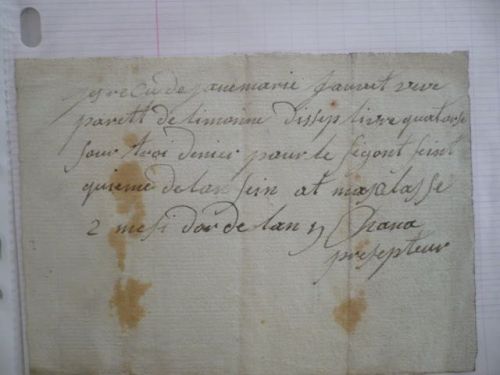 je recu de janemarie fauvet veve
parett de limonne dissep livre quatorse
sour troi denier pour le segont seint
quieme de lan sein at masclasse
2 mesidor de lan 5
presepteur